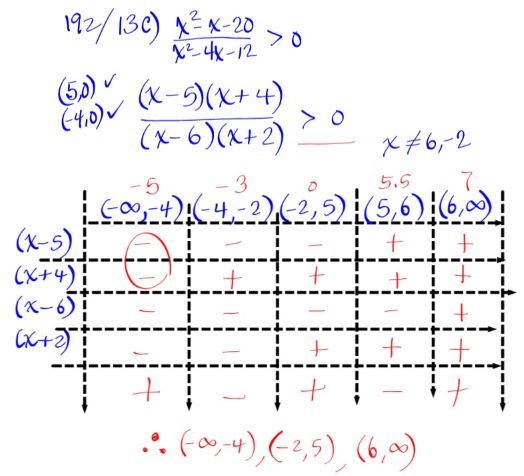 192/13c) x²-x-20 / x²-4x-12 > 0
(5,0) ✓
(-4,0) ✓
(x-5)(x+4) / (x-6)(x+2) > 0
x ≠ 6,-2
-5 -3 0 5.5 7
(-∞,-4) (-4,-2) (-2,5) (5,6) (6,∞)
(x-5) - - - + +
(x+4) - + + + +
(x-6) - - - - +
(x+2) - - + + +
+ - + - +
∴ (-∞,-4), (-2,5), (6,∞)